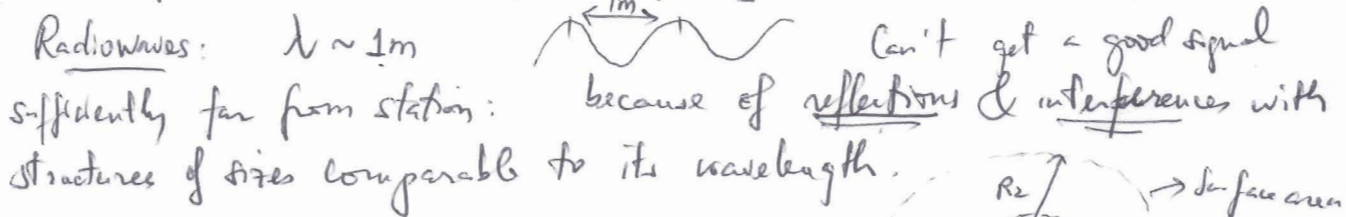 1m
Radiowaves: λ ~ 1m Can't get a good signal
sufficiently far from station: because of reflections & interferences with
structures of sizes comparable to its wavelength.
R2 → Surface area